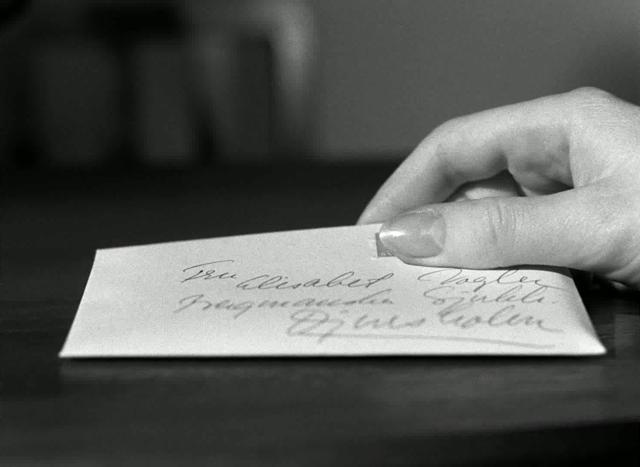 Fru Elisabet Vogler
Sjukh.
Djursholm